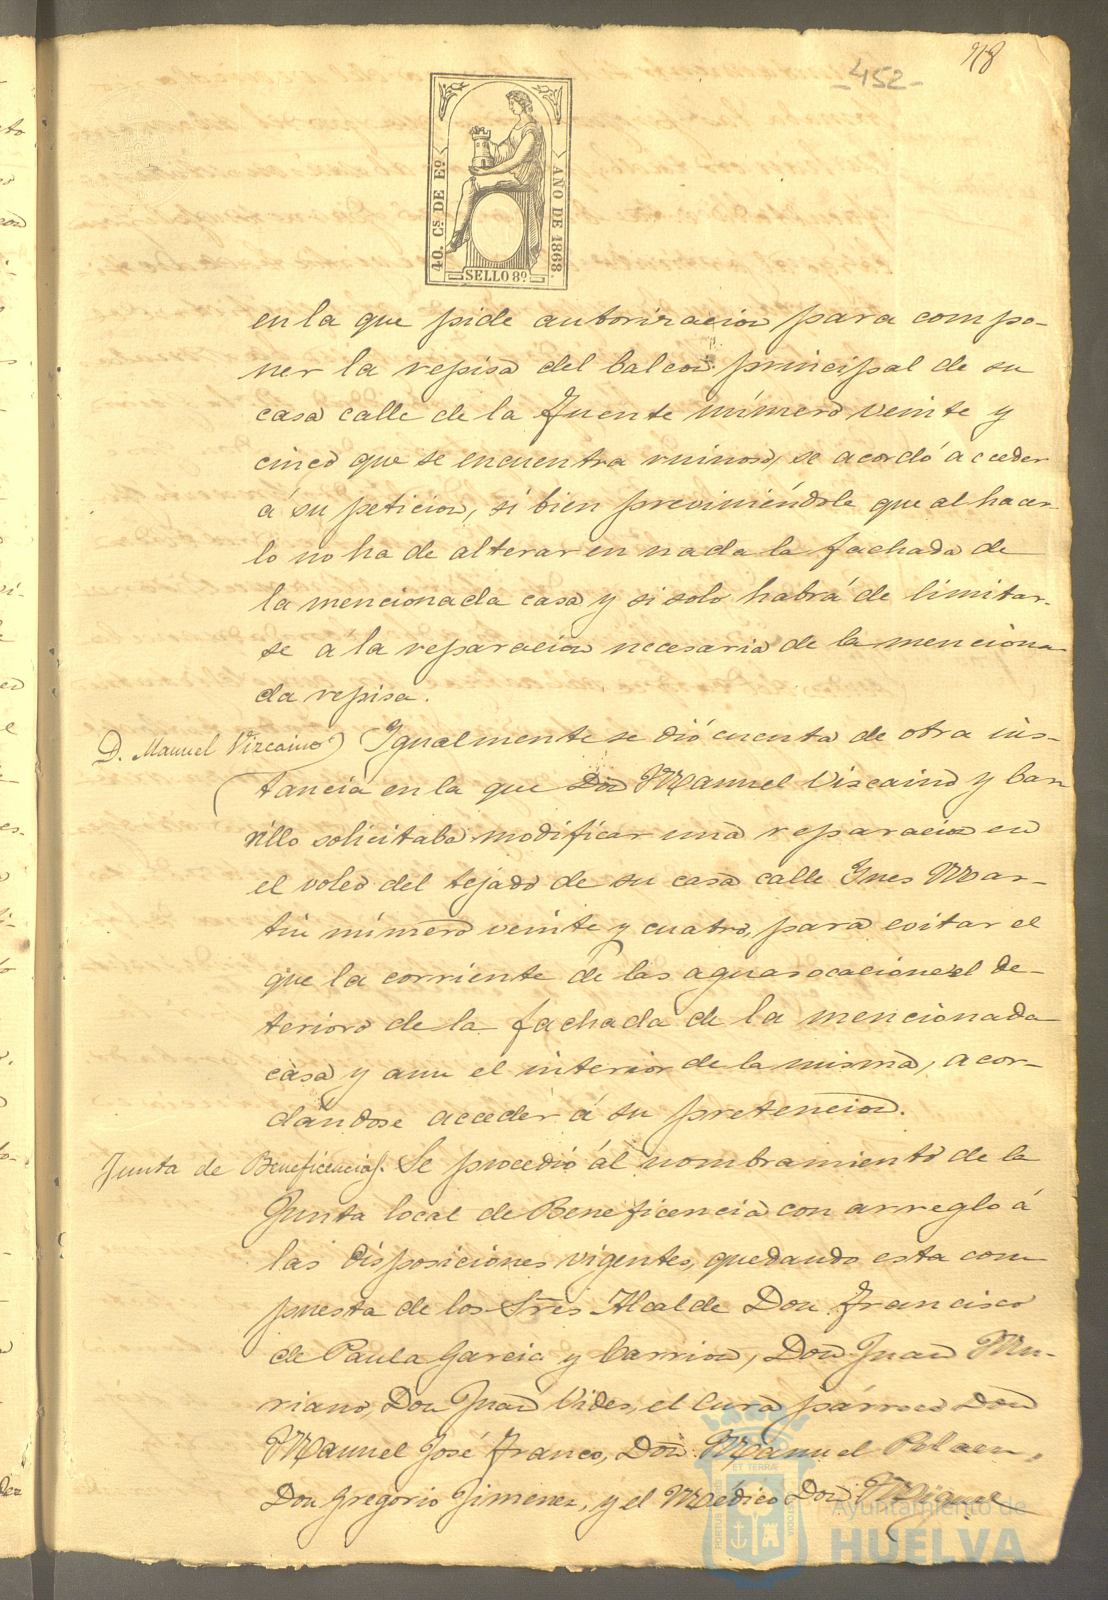 918
-452-
40. Cs DE Eo.
AÑO DE 1868.
SELLO 8o
en la que pide autorizacion para compo-
ner la repisa del balcon principal de su
casa calle de la Fuente número veinte y
cinco que se encuentra ruinoso, se acordó acceder
á su peticion, si bien previniéndole que al hacer-
lo no ha de alterar en nada la fachada de
la mencionada casa y si solo habrá de limitar-
se a la reparacion necesaria de la menciona-
da repisa.
D. Manuel Vizcaino) Igualmente se dió cuenta de otra ins-
tancia en la que Don Manuel Viscaino y Car-
rillo solicitaba modificar una reparacion en
el voleo del tejado de su casa calle Ynes Mar-
tin número veinte y cuatro, para evitar el
que la corriente de las aguas ocacione el de-
terioro de la fachada de la mencionada
casa y aun el interior de la misma, acor-
dándose acceder á su pretencion.
Junta de Beneficencia). Se procedió al nombramiento de la
Junta local de Beneficencia con arreglo á
las disposiciones vigentes, quedando esta com
puesta de los Sres Alcalde Don Francisco
de Paula Garcia y Carrion, Don Juan Mu-
riano, Don Juan Vides, el Cura párroco Don
Manuel José Franco, Don Manuel Pelaen,
Don Gregorio Jimenez, y el Medico Don Miguel
Ayuntamiento de
HUELVA